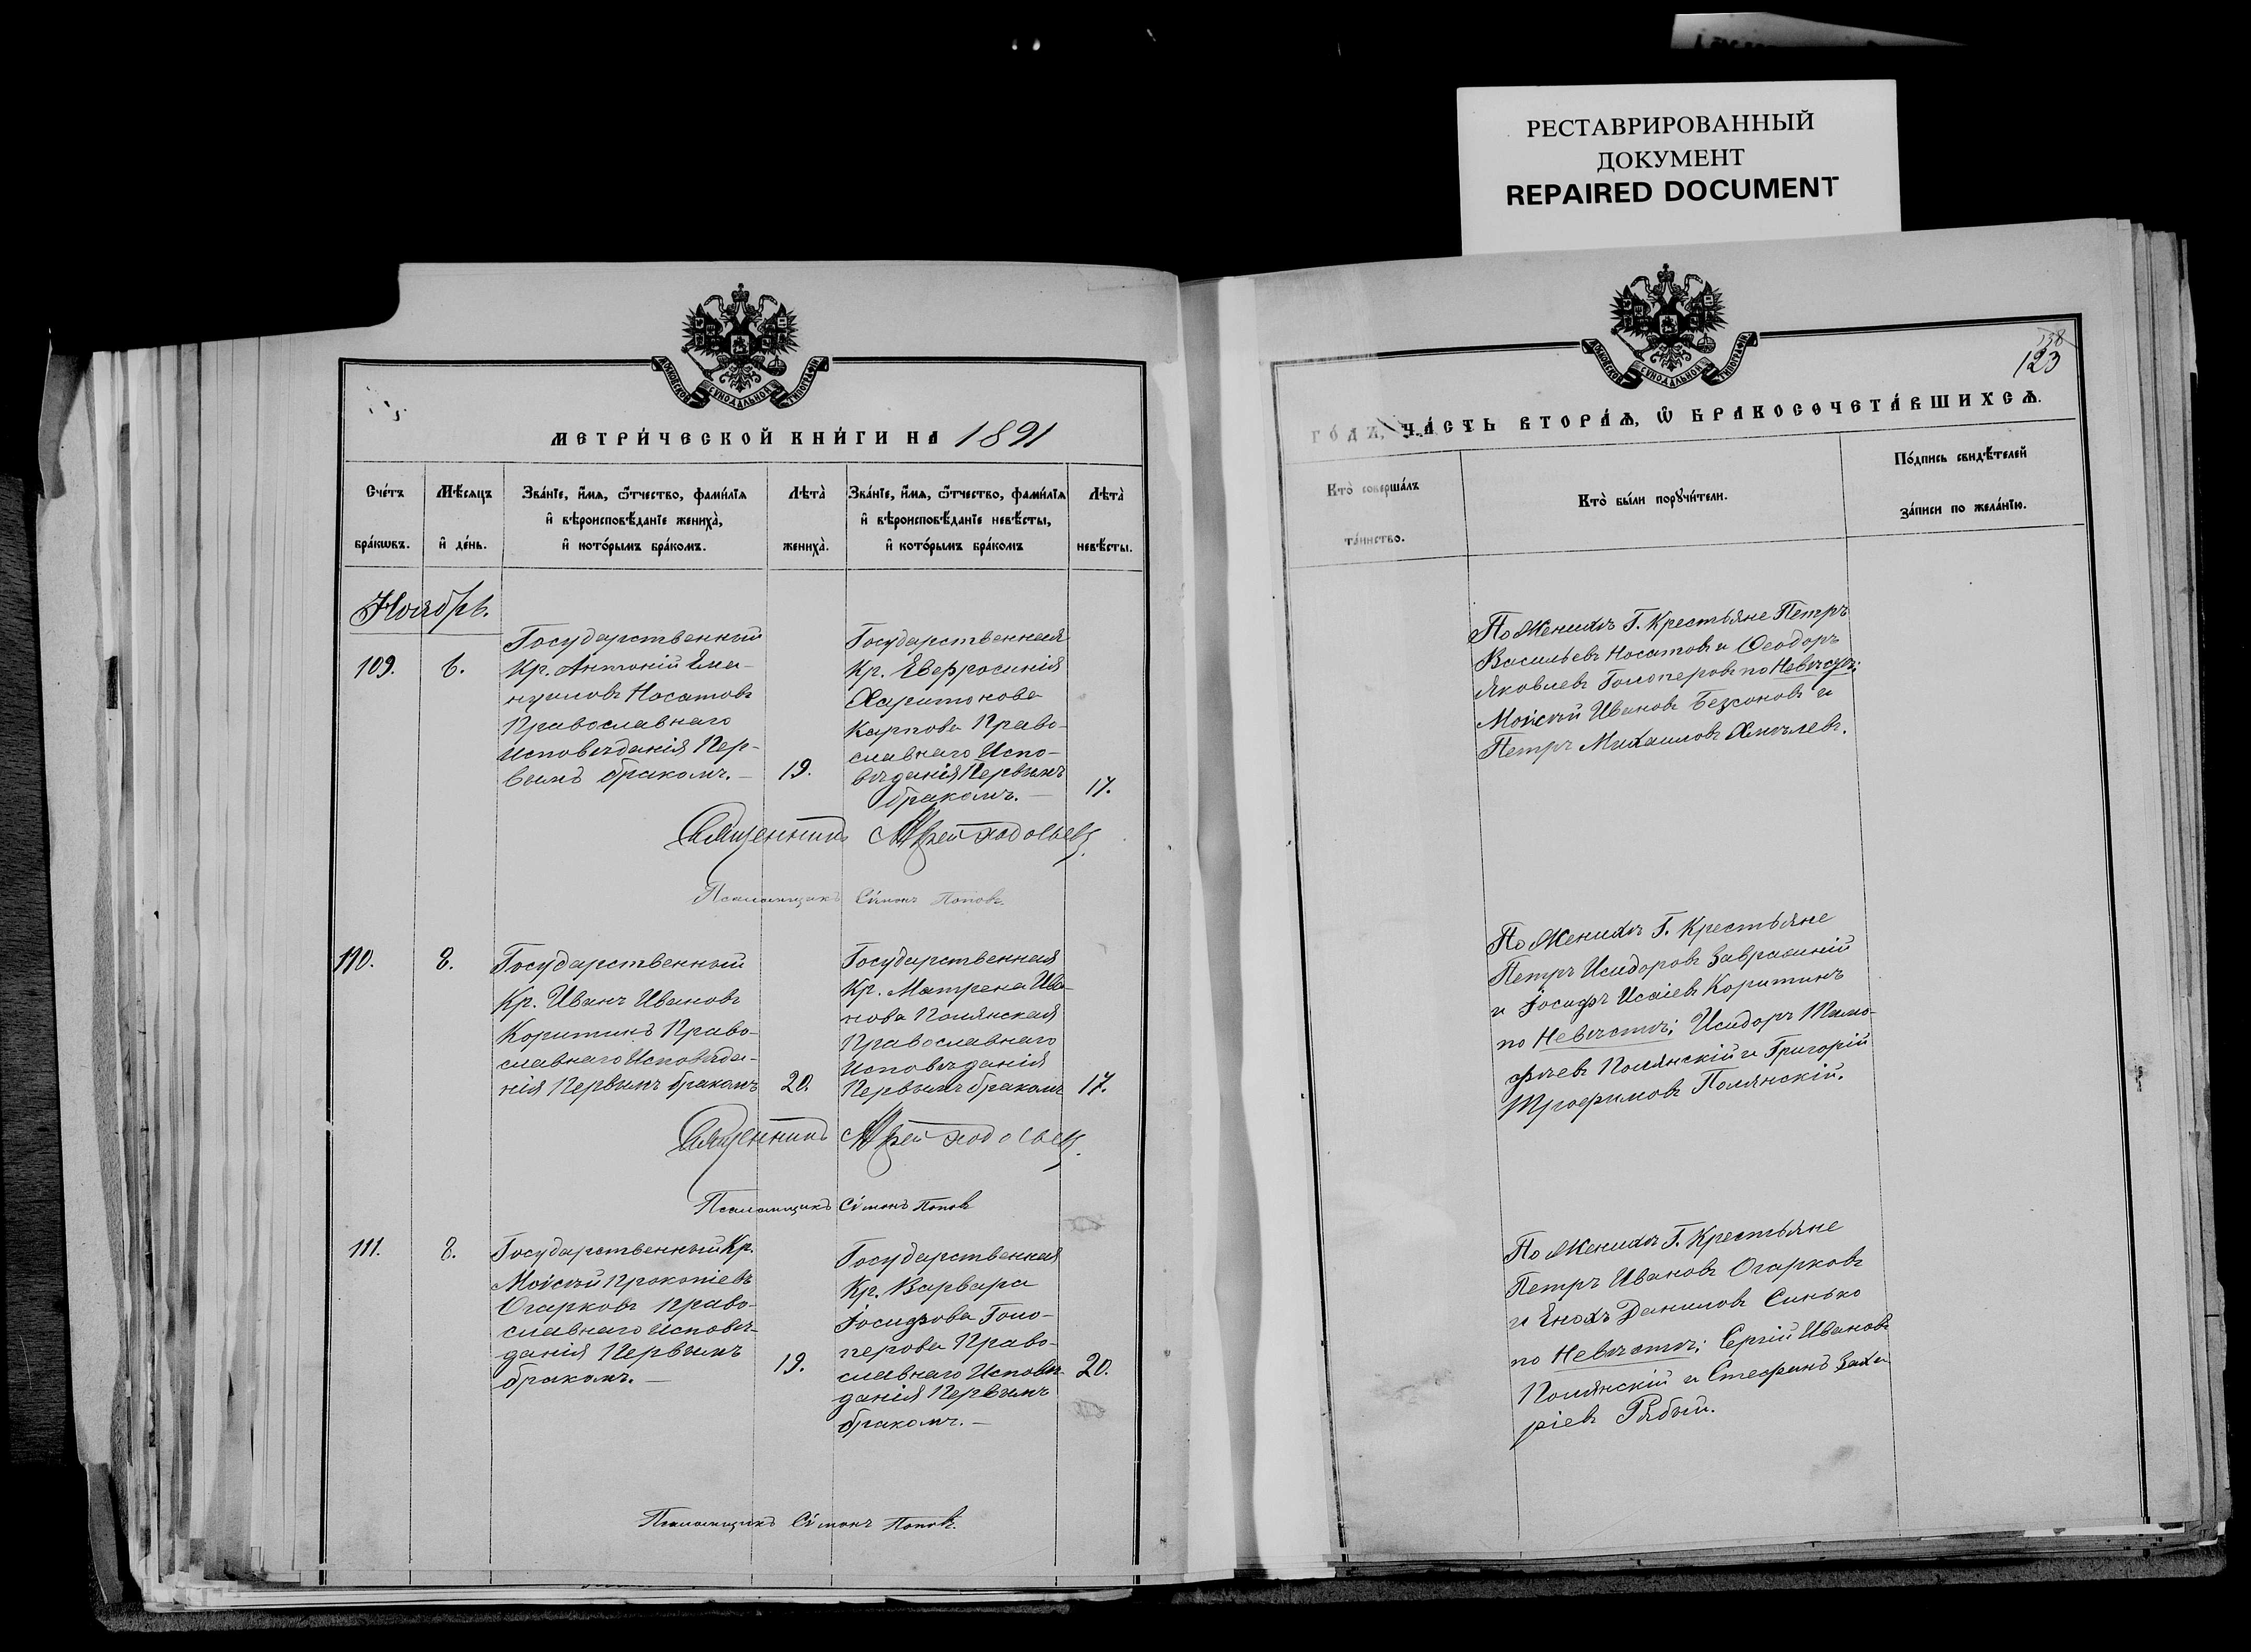 РЕСТАВРИРОВАННЫЙ
ДОКУМЕНТ
REPAIRED DOCUMENT
МОСКОВСКОЙ СѴНОДАЛЬНОЙ ТИПОГРАФІИ
МЕТРИ́ЧЕСКОЙ КНИ́ГИ НА 1891
Сче́тъ бра́кѡвъ.
Мѣ́сяцъ и҆ де́нь.
Зва́нїе, и҆́мѧ, ѻ҆́тчество, фами́лїѧ
и҆ вѣроисповѣ́данїе жениха̀,
и҆ кото́рымъ бра́комъ.
Лѣта̀ жениха̀.
Зва́нїе, и҆́мѧ, ѻ҆́тчество, фами́лїѧ
и҆ вѣроисповѣ́данїе невѣ́сты,
и҆ кото́рымъ бра́комъ
Лѣта̀ невѣ́сты.
Ноябрь.
109.
6.
Государственный
Кр. Антоній Ема-
нуилов Носатовъ
Православнаго
Исповѣданія Пер-
вымъ бракомъ. —
19.
Государственная
Кр. Евфросинія
Харитонова
Карпова Право-
славнаго Испо-
вѣданія Первымъ
бракомъ. —
17.
Священникъ
Псаломщикъ Сімонъ Поповъ.
110.
8.
Государственный
Кр. Иванъ Ивановъ
Коритинъ Право-
славнаго Исповѣда-
нія Первымъ бракомъ
20.
Государственная
Кр. Матрена Ива-
нова Полянская
Православнаго
Исповѣданія
Первымъ бракомъ
17.
Священникъ
Псаломщикъ Сімонъ Поповъ
111.
8.
Государственный Кр.
Моисей Прокопіевъ
Огарковъ Право-
славнаго Исповѣ-
данія Первымъ
бракомъ. —
19.
Государственная
Кр. Варвара
Іосифова Голо-
перова Право-
славнаго Исповѣ-
данія Первымъ
бракомъ. —
20.
Псаломщикъ Сімонъ Поповъ.
МОСКОВСКОЙ СѴНОДАЛЬНОЙ ТИПОГРАФІИ
123
ГО́ДЪ, ЧА́СТЬ ВТОРА́Ѧ, Ѽ БРАКОСОЧЕТА́ВШИХСѦ.
Кто̀ соверша́лъ
та́инство.
Кто̀ бы́ли порꙋчи́тели.
По́дпись свидѣ́телей
за́писи по жела́нїю.
По Женихѣ Г. Крестьяне Петръ
Васильевъ Носатовъ и Ѳеодоръ
Яковлевъ Голоперовъ по Невѣстѣ:
Моисей Ивановъ Безсоновъ и
Петръ Михаиловъ Хмѣлевъ.
По Женихѣ Г. Крестьяне
Петръ Исидоровъ Завражній
и Іосифъ Исаіевъ Коритинъ
по Невѣстѣ; Исидоръ Тимо-
фѣевъ Полянскій и Григорій
Трофимовъ Полянскій.
По Женихѣ Г. Крестьяне
Петръ Ивановъ Огарковъ
и Енохъ Даниловъ Синько
по Невѣстѣ; Сергій Ивановъ
Полянскій и Стефанъ Заха-
ріевъ Рябый.